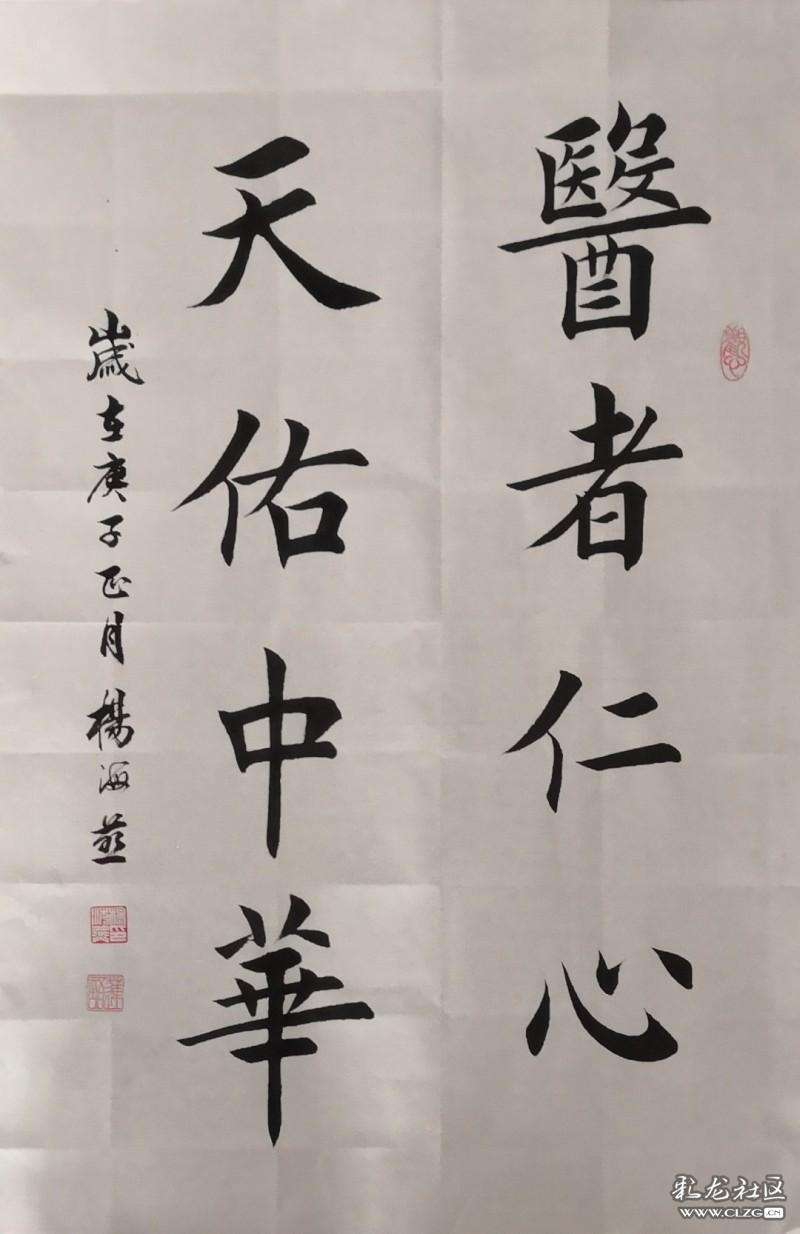 醫者仁心
天佑中華
歲在庚子正月楊海燕
彩龙社区
WWW.CLZG.CN